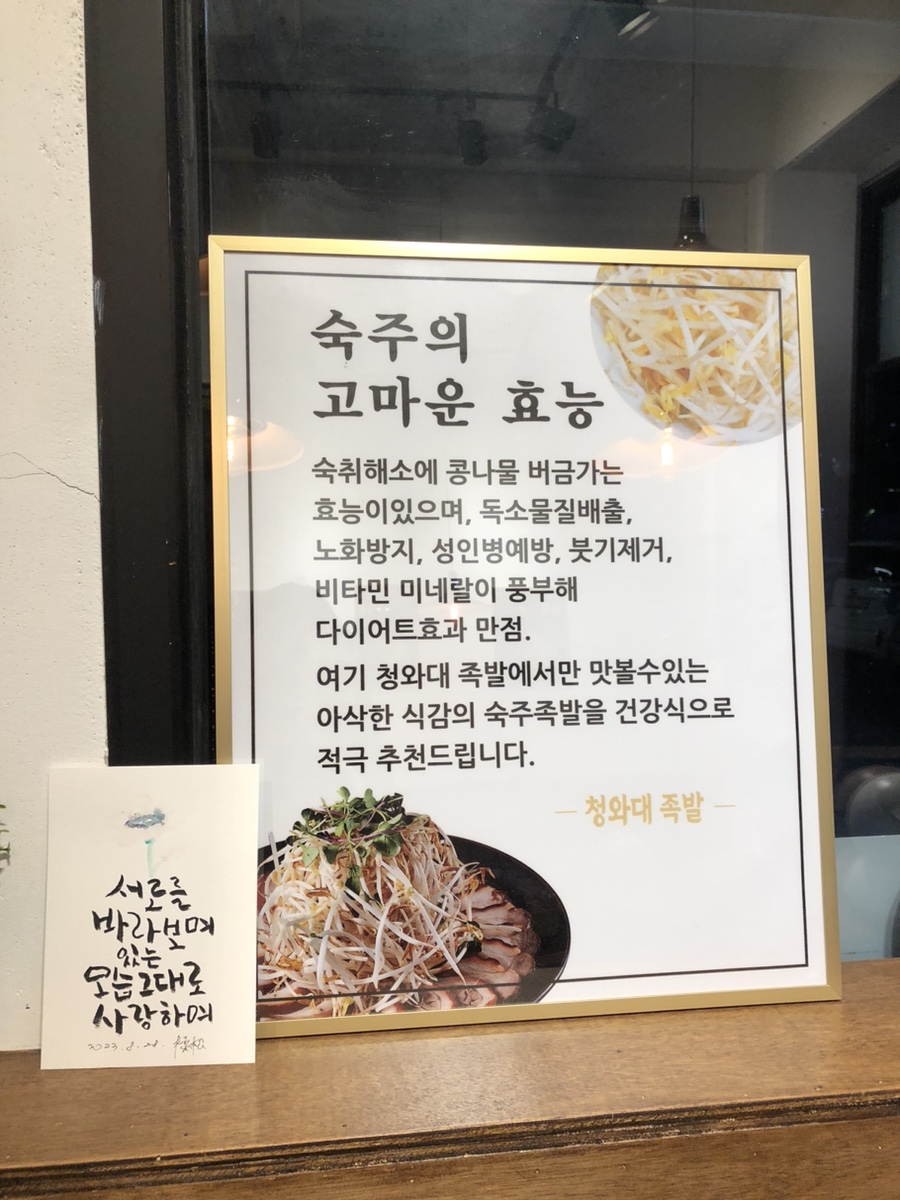 숙주의
고마운 효능
숙취해소에 콩나물 버금가는
효능이있으며, 독소물질배출,
노화방지, 성인병예방, 붓기제거,
비타민 미네랄이 풍부해
다이어트효과 만점.
여기 청와대 족발에서만 맛볼수있는
아삭한 식감의 숙주족발을 건강식으로
적극 추천드립니다.
청와대 족발
서로를
바라보며
있는
모습그대로
사랑하며
2023. 8. 28.